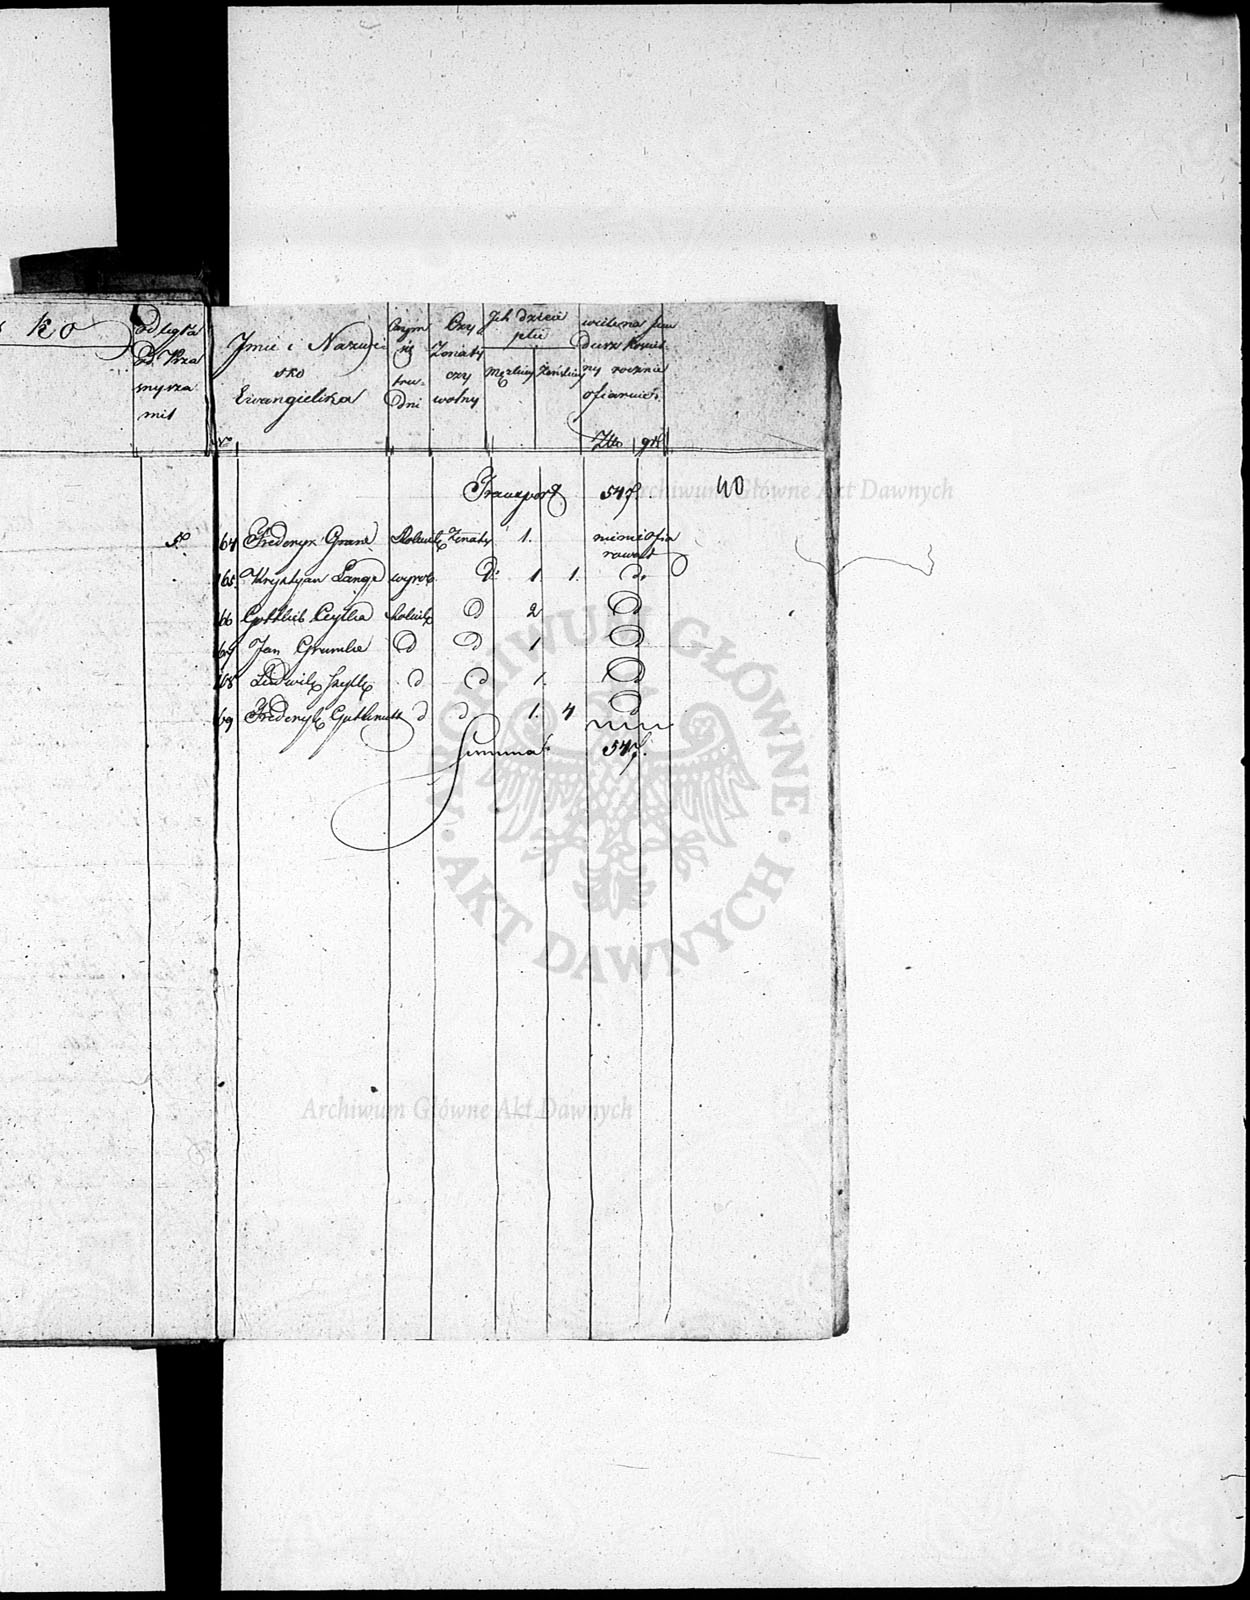 k o
odległa
od Prza
snysza
mil
5
Imie i Nazwi
sko
Ewangielika
No
Czym
się
tru-
dni
Czy
Żonaty
czy
wolny
Jch dzieci
płci
Męzkiey
Żeńskiey
wiele na fun
dusz
ny rocznie
ofiarował
Złto
gr
Transport 547
40
64 Frederyk Grans Rolnik Żonaty 1. nic nie ofia
rował
165 Krystyan Lange wyrob. do 1 1. do
66 Gottlieb Ceytka Rolnik d 2 d
167 Jan Grumke d d 1 d
168 Ludwik d d 1. d
169 Frederyk d d 1. 4 d
Summa 547.
Archiwum Główne Akt Dawnych
ARCHIWUM GŁÓWNE
· AKT DAWNYCH ·
Archiwum Główne Akt Dawnych